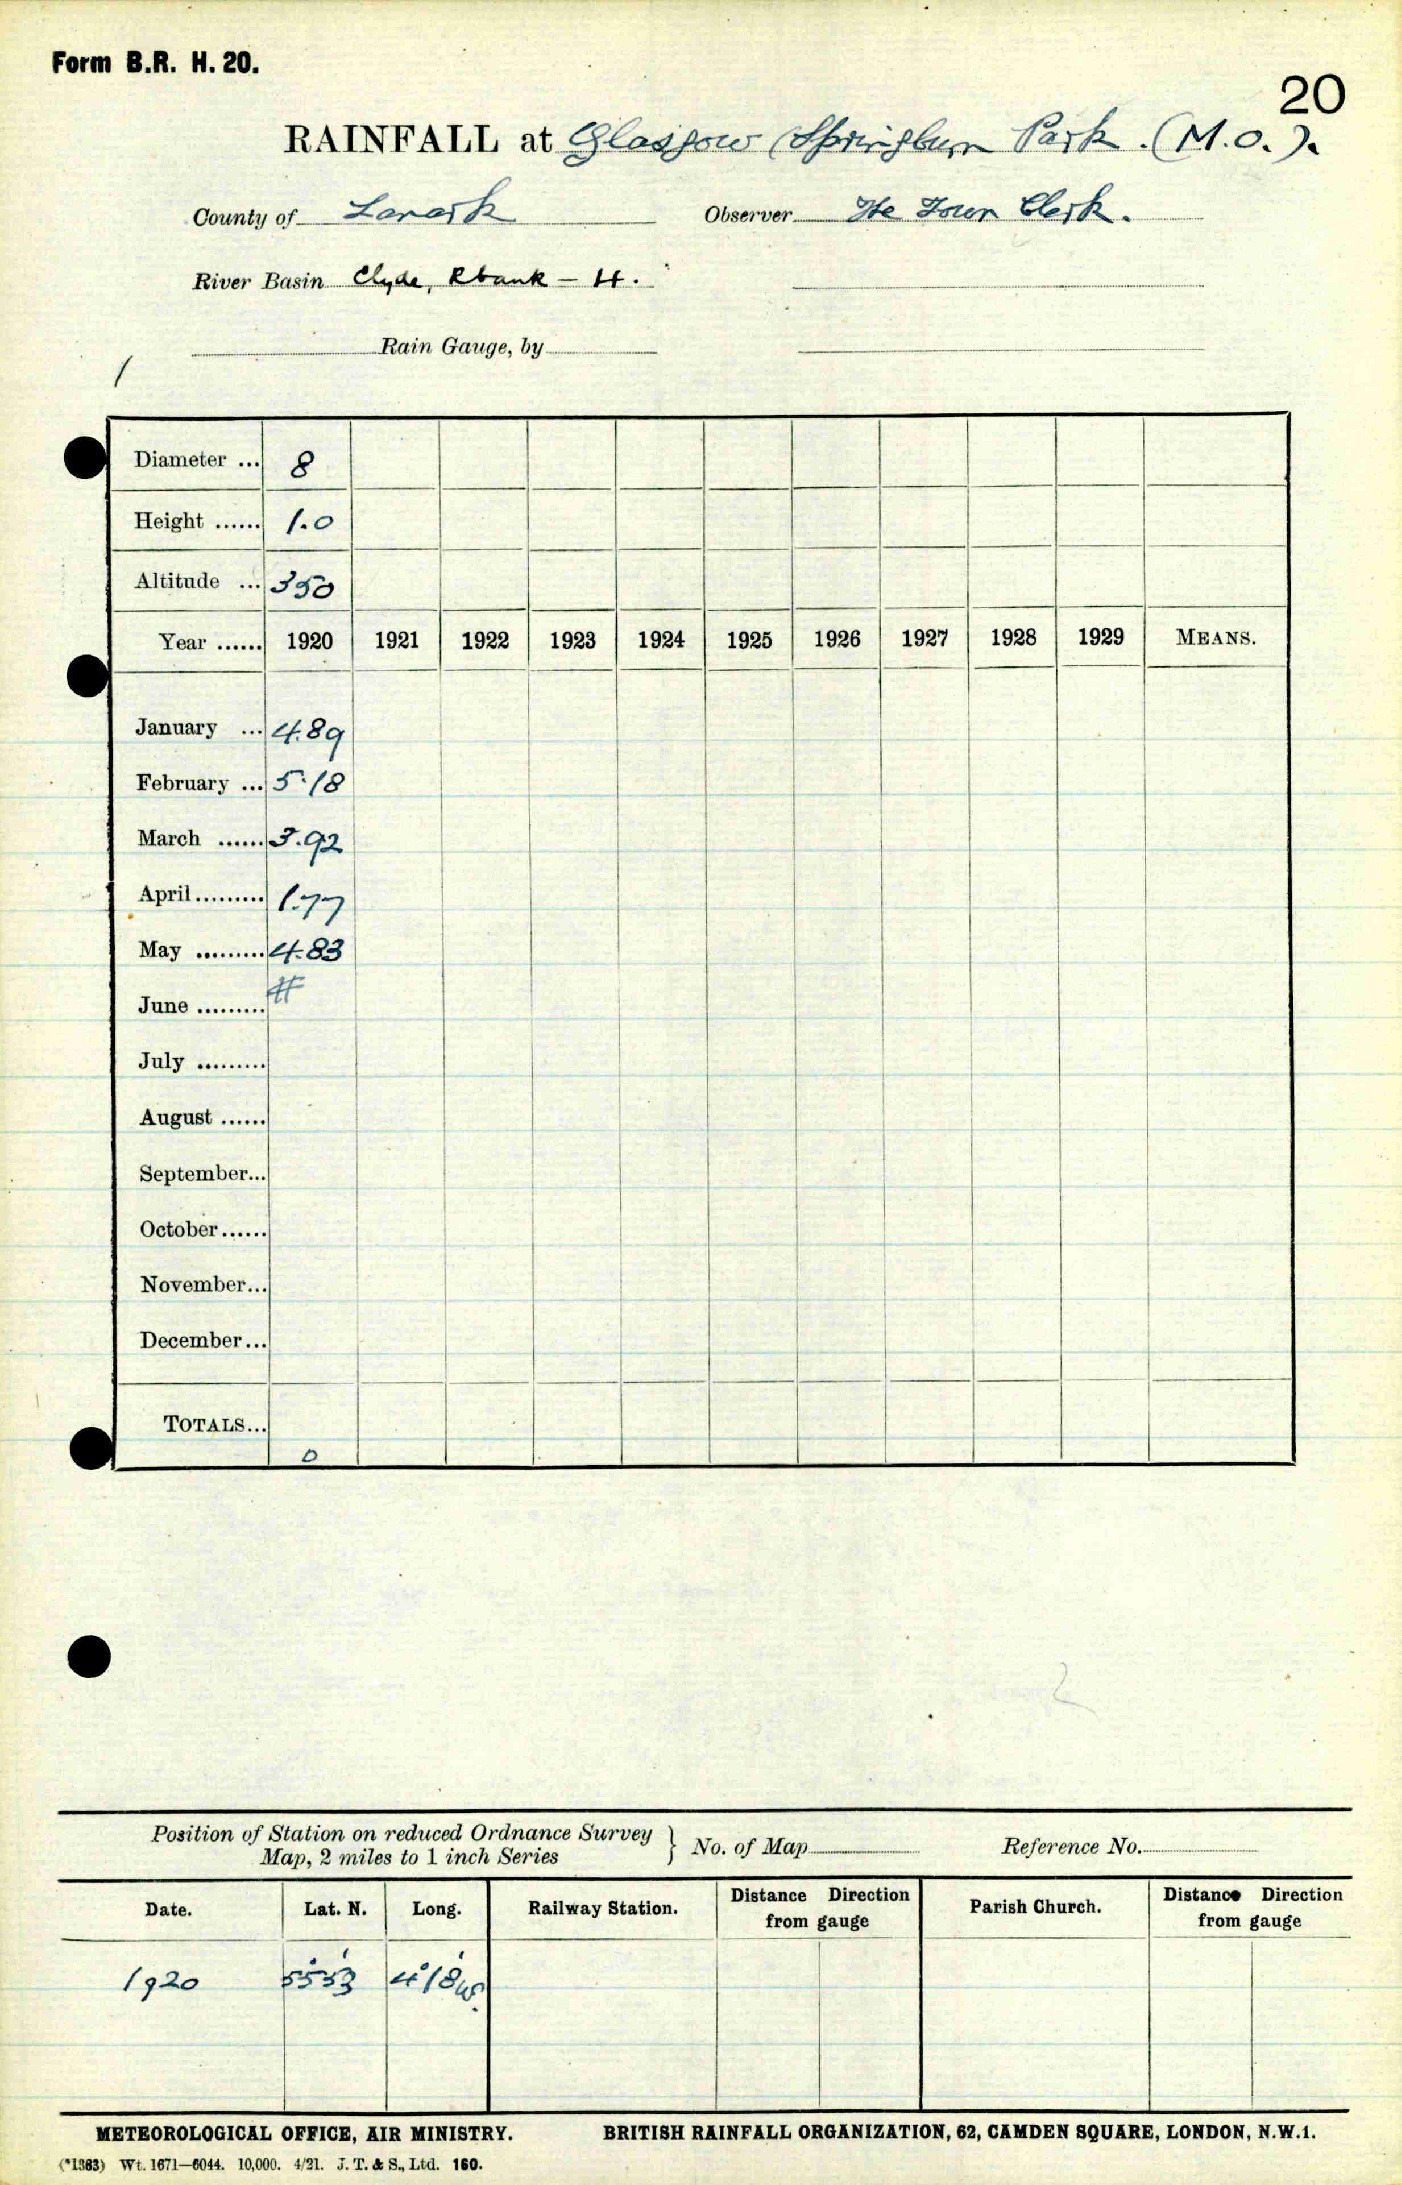 Form B.R. H. 20.
20
RAINFALL at Glasgow (Springburn Park. (M.O.).
County of Lanark Observer The Town Clerk.
River Basin Clyde, Rbank - H.
Rain Gauge, by
/
Diameter ... 8
Height ...... 1.0
Altitude ... 350
Year ...... 1920 1921 1922 1923 1924 1925 1926 1927 1928 1929 MEANS.
January ... 4.89
February ... 5.18
March ...... 3.92
April......... 1.77
May ......... 4.83
June ......... #
July .........
August ......
September...
October......
November...
December...
TOTALS...
0
2
Position of Station on reduced Ordnance Survey
Map, 2 miles to 1 inch Series } No. of Map Reference No.
Date. Lat. N. Long. Railway Station. Distance Direction from gauge Parish Church. Distance Direction from gauge
1920 55°53' 4°18'W.
METEOROLOGICAL OFFICE, AIR MINISTRY. BRITISH RAINFALL ORGANIZATION, 62, CAMDEN SQUARE, LONDON, N.W.1.
(*1383) Wt. 1671—6044. 10,000. 4/21. J. T. & S., Ltd. 160.